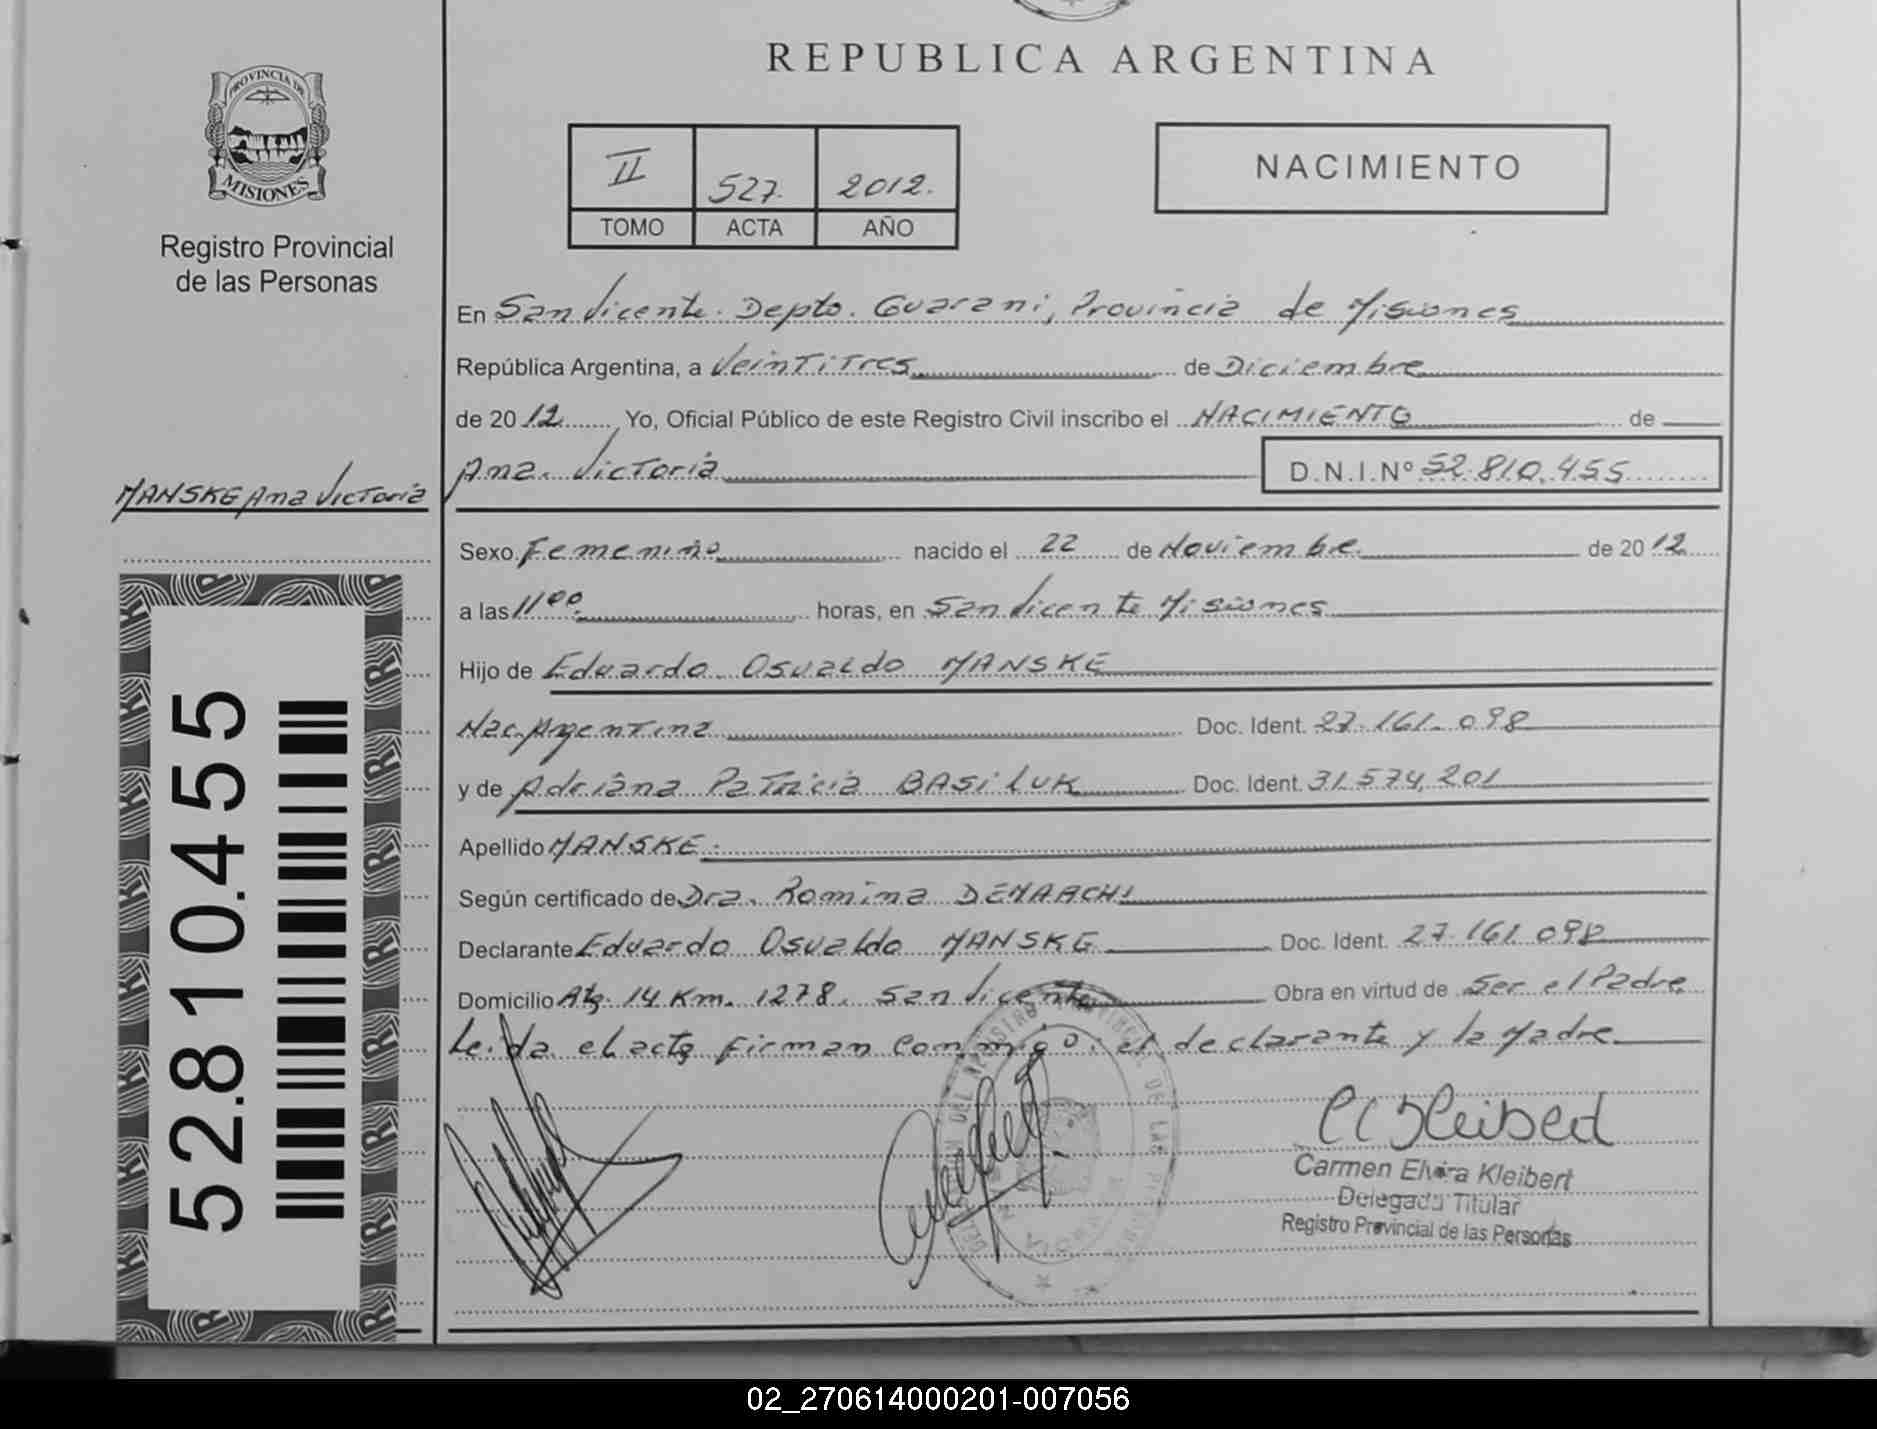 REPUBLICA ARGENTINA
PROVINCIA DE
MISIONES
Registro Provincial
de las Personas
II 527. 2012.
TOMO ACTA AÑO
NACIMIENTO
En San Vicente. Depto. Guarani, Provincia de Misiones
República Argentina, a Veintitres de Diciembre
de 2012 Yo, Oficial Público de este Registro Civil inscribo el NACIMIENTO de
Ana Victoria D.N.I.Nº 52.810.455
MANSKE Ana Victoria
Sexo Femenino nacido el 22 de Noviembre de 2012
a las 11 00 horas, en San Vicente Misiones
Hijo de Eduardo Osvaldo MANSKE
Nac. Argentina Doc. Ident. 27.161.098
y de Adriana Patricia BASILUK Doc. Ident. 31.574.201
Apellido MANSKE
Según certificado de Dra. Romina DEMARCHI
Declarante Eduardo Osvaldo MANSKE Doc. Ident. 27.161.098
Domicilio 14 Km. 1278. San Vicente Obra en virtud de Ser el Padre
Leida el acta firman conmigo el declarante y la Madre
52.810.455
Carmen Elvira Kleibert
Delegada Titular
Registro Provincial de las Personas
02_270614000201-007056